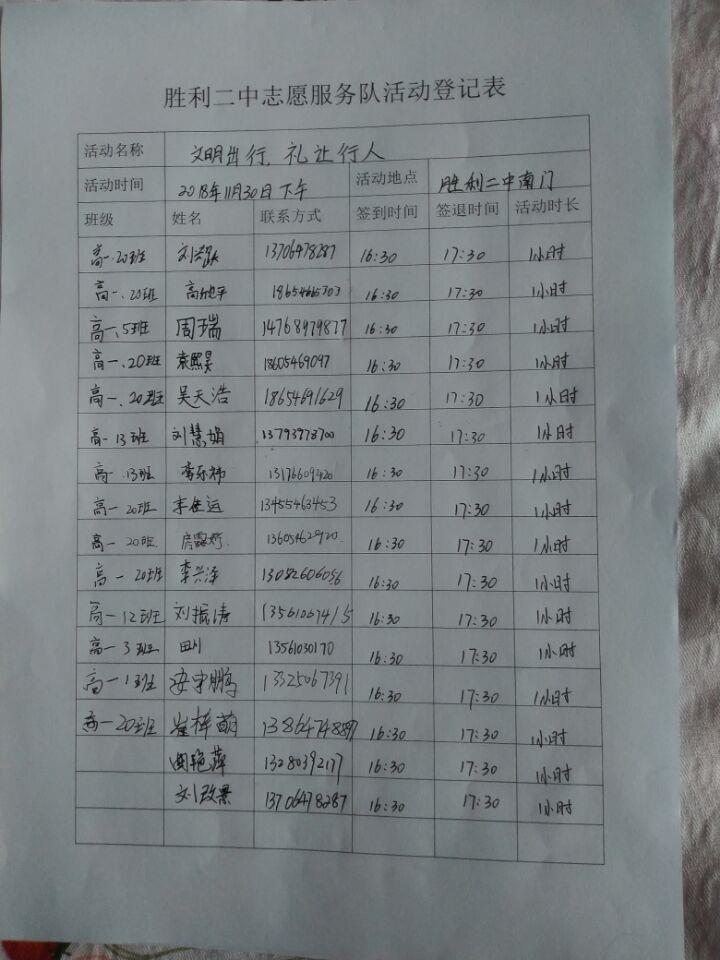 胜利二中志愿服务队活动登记表
活动名称 文明出行，礼让行人
活动时间 2018年11月30日下午 活动地点 胜利二中南门
班级 姓名 联系方式 签到时间 签退时间 活动时长
高一.20班 13706478287 16:30 17:30 1小时
高一.20班 16:30 17:30 1小时
高一.5班 周瑞 14768979877 16:30 17:30 1小时
高一.20班 袁熙昊 18605469097 16:30 17:30 1小时
高一.20班 吴天浩 18654691629 16:30 17:30 1小时
高一13班 刘慧娟 13793978700 16:30 17:30 1小时
高一.13班 13176609420 16:30 17:30 1小时
高一20班 李佳运 13455463453 16:30 17:30 1小时
高一20班 13605462920 16:30 17:30 1小时
高一20班 李兴泽 13082606056 16:30 17:30 1小时
高一12班 刘振涛 13561067415 16:30 17:30 1小时
高一3班 田川 13561030170 16:30 17:30 1小时
高一1班 安宇鹏 13325067391 16:30 17:30 1小时
高一20班 崔梓萌 13864748897 16:30 17:30 1小时
周艳萍 13280392177 16:30 17:30 1小时
刘改景 13706478287 16:30 17:30 1小时